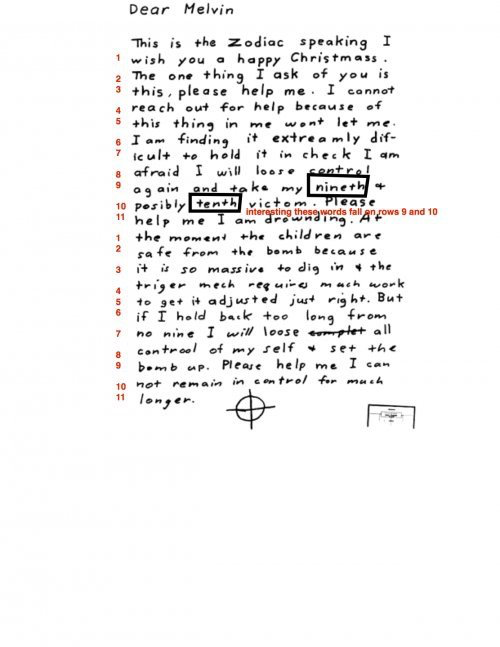 Dear Melvin
This is the Zodiac speaking I
1 wish you a happy Christmass.
2 The one thing I ask of you is
3 this, please help me. I cannot
4 reach out for help because of
5 this thing in me wont let me.
6 I am finding it extreamly dif-
7 icult to hold it in check I am
8 afraid I will loose control
9 again and take my nineth &
10 posibly tenth victom. Please
interesting these words fall on rows 9 and 10
11 help me I am drownding. At
1 the moment the children are
2 safe from the bomb because
3 it is so massive to dig in & the
4 triger mech requires much work
5 to get it adjusted just right. But
6 if I hold back too long from
7 no nine I will loose complet all
8 controol of my self & set the
9 bomb up. Please help me I can
10 not remain in control for much
11 longer.